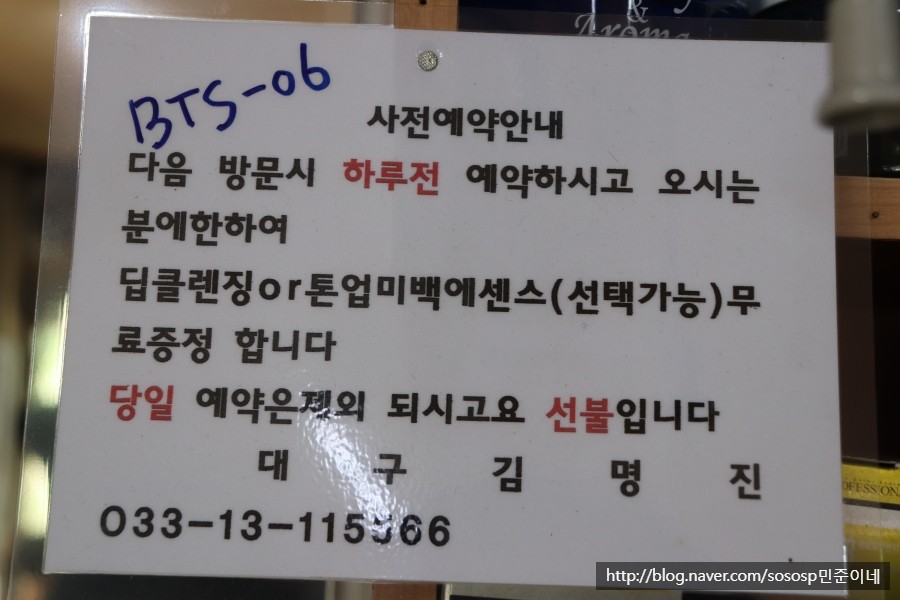 &
Aroma
BTS-06
사전예약안내
다음 방문시 하루전 예약하시고 오시는
분에한하여
딥클렌징or톤업미백에센스(선택가능)무
료증정 합니다
당일 예약은제외 되시고요 선불입니다
대 구 김 명 진
http://blog.naver.com/sososp민준이네